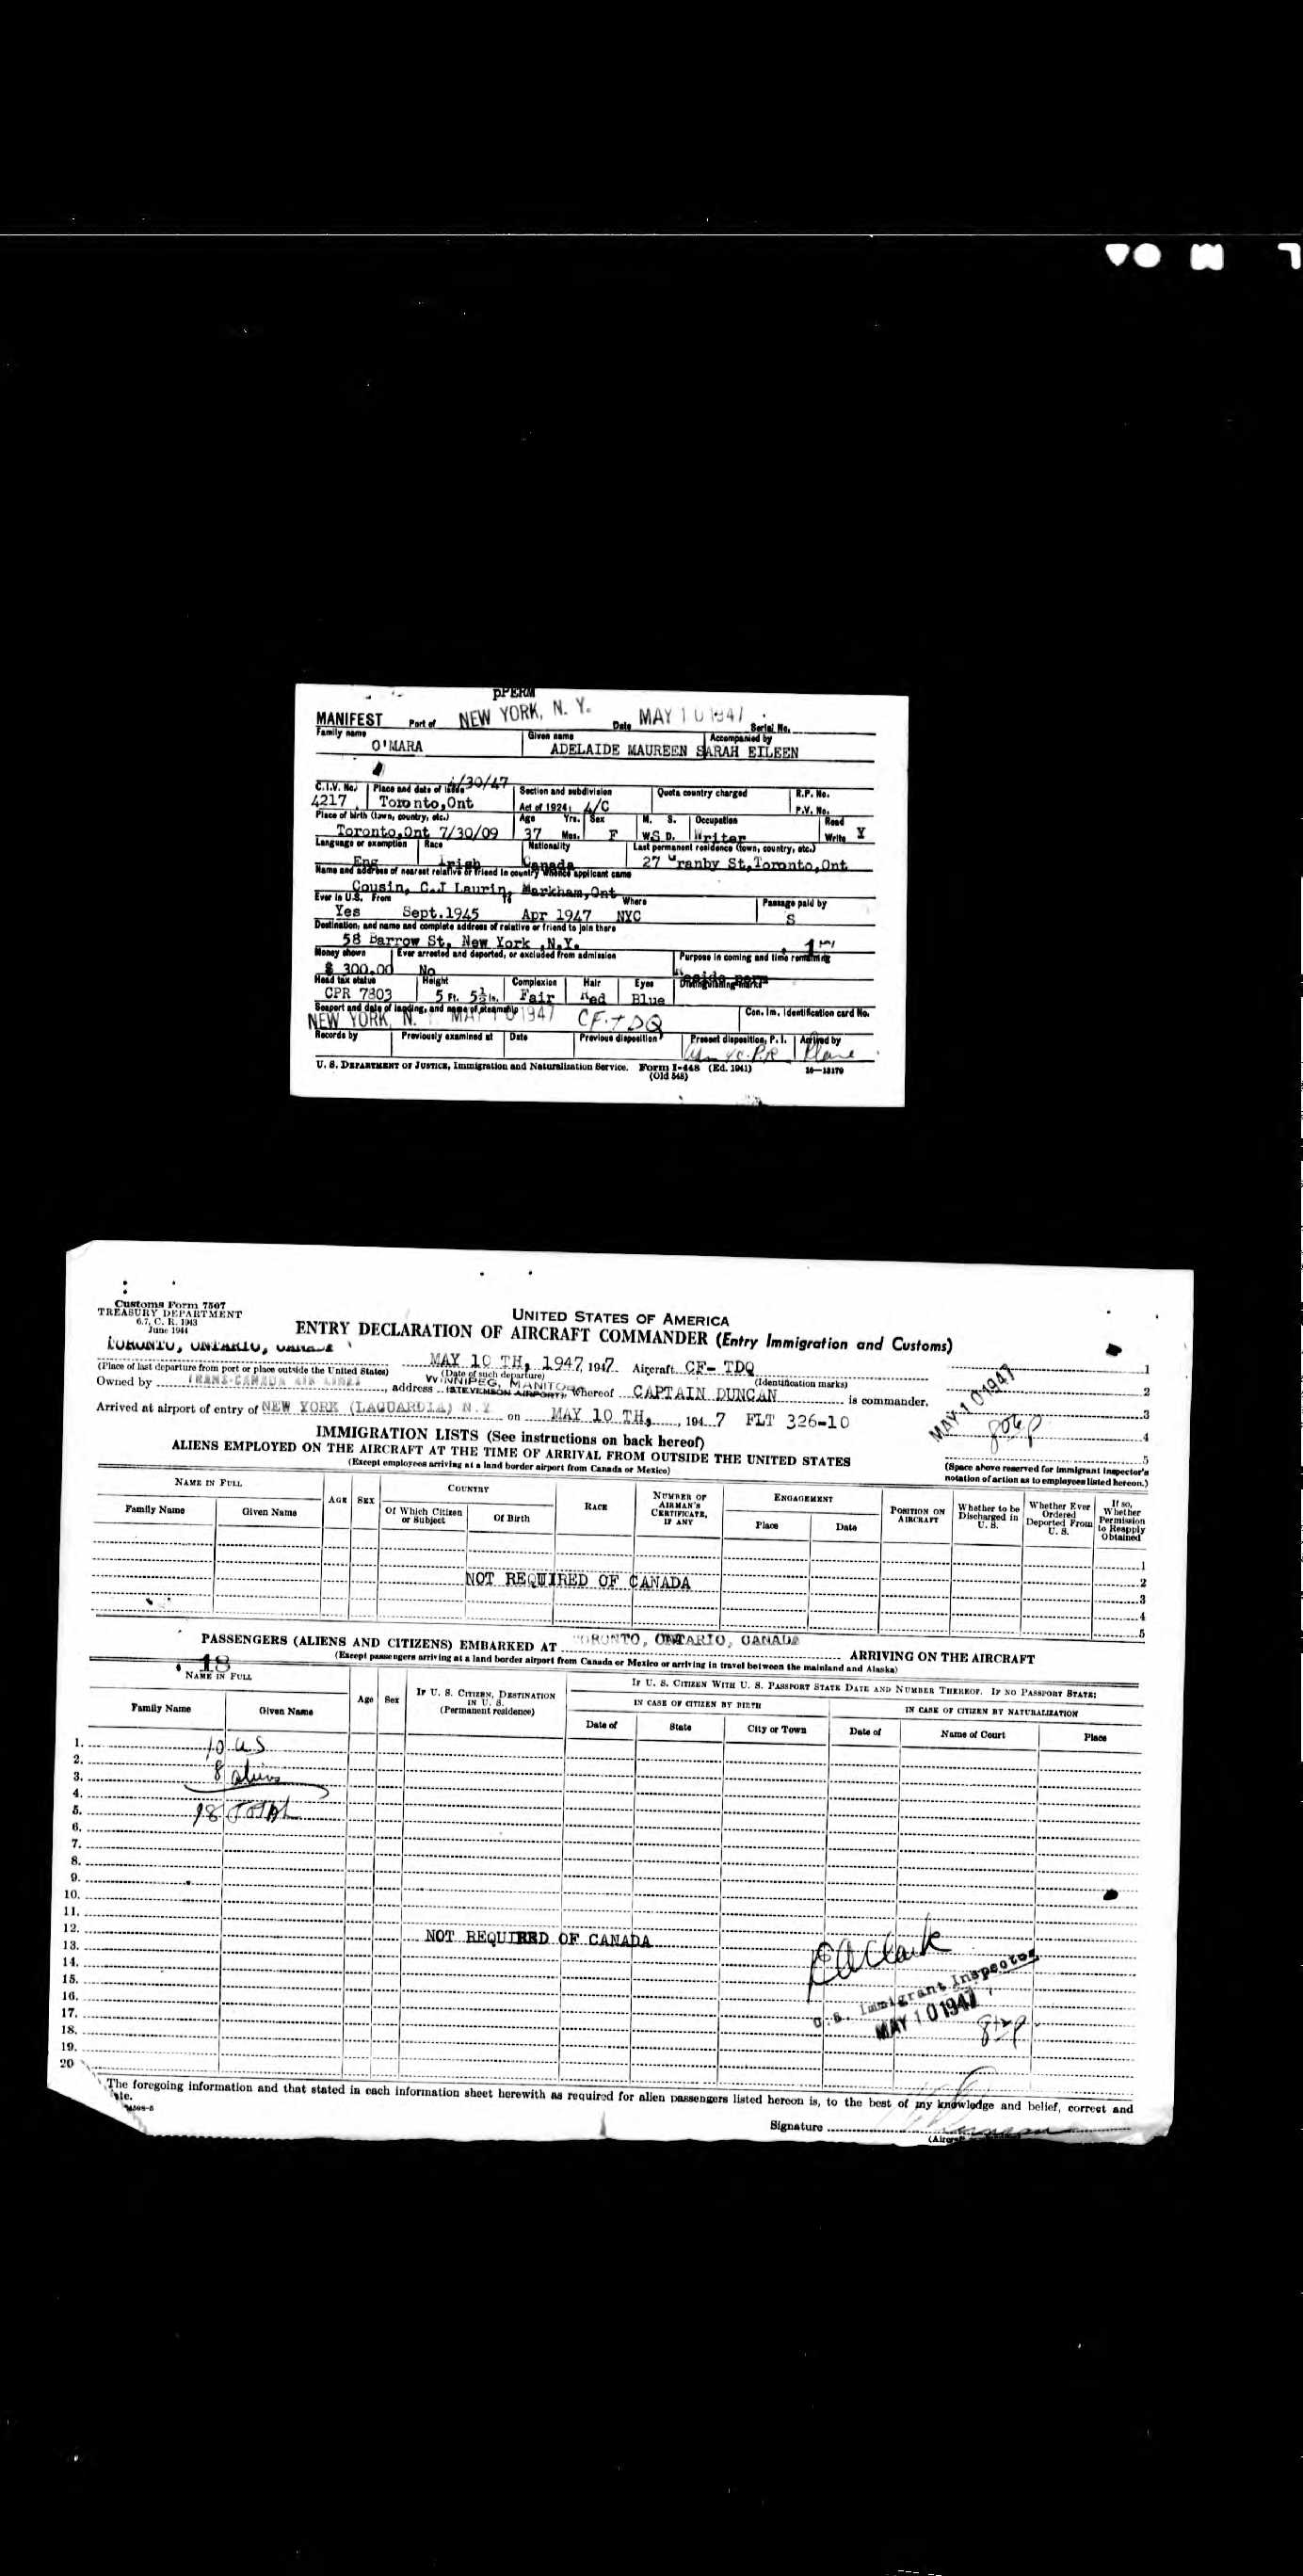 pPERM
MANIFEST Port of NEW YORK, N. Y. Date MAY 10 1947 Serial No.
Family name Given name Accompanied by
O'MARA ADELAIDE MAUREEN SARAH EILEEN
C.I.V. No. Place and date of issue /30/47 Section and subdivision Quota country charged R.P. No.
4217 Toronto,Ont Act of 1924: 4/C P.V. No.
Place of birth (town, country, etc.) Age Yrs. Sex M. S. Occupation Read
Toronto,Ont 7/30/09 37 Mos. F WS D. Writer Write Y
Language or exemption Race Nationality Last permanent residence (town, country, etc.)
Eng Irish Canada 27 Granby St,Toronto,Ont
Name and address of nearest relative or friend in country whence applicant came
Cousin, C.J Laurin, Markham,Ont
Ever in U.S. From To Where Passage paid by
Yes Sept.1945 Apr 1947 NYC S
Destination, and name and complete address of relative or friend to join there
58 Barrow St, New York ,N.Y.
Money shown Ever arrested and deported, or excluded from admission Purpose in coming and time remaining
$ 300.00 No Reside perm
Head tax status Height Complexion Hair Eyes Distinguishing marks
CPR 7803 5 Ft. 5½ In. Fair Red Blue
Seaport and date of landing, and name of steamship Can. Im. Identification card No.
NEW YORK, N. MAY 10 1947 CF-TDQ
Records by Previously examined at Date Previous disposition Present disposition, P. I. Arrived by
Plane
U. S. DEPARTMENT OF JUSTICE, Immigration and Naturalization Service. Form I-448 (Ed. 1941) 16—13170
(Old 548)
Customs Form 7507
TREASURY DEPARTMENT
6.7, C. R. 1943
June 1944
UNITED STATES OF AMERICA
ENTRY DECLARATION OF AIRCRAFT COMMANDER (Entry Immigration and Customs)
TORONTO, ONTARIO, CANADA MAY 10 TH, 1947, 1947. Aircraft CF- TDQ 1
(Place of last departure from port or place outside the United States) (Date of such departure) (Identification marks)
WINNIPEG, MANITOBA
Owned by TRANS-CANADA AIR LINES, address (STEVENSON AIRPORT), whereof CAPTAIN DUNCAN is commander, 2
MAY 10 1947
3
Arrived at airport of entry of NEW YORK (LAGUARDIA) N.Y on MAY 10 TH, , 1947 FLT 326-10
806p 4
5
IMMIGRATION LISTS (See instructions on back hereof)
ALIENS EMPLOYED ON THE AIRCRAFT AT THE TIME OF ARRIVAL FROM OUTSIDE THE UNITED STATES
(Except employees arriving at a land border airport from Canada or Mexico)
(Space above reserved for Immigrant Inspector's notation of action as to employees listed hereon.)
NAME IN FULL AGE SEX COUNTRY RACE NUMBER OF AIRMAN'S CERTIFICATE, IF ANY ENGAGEMENT POSITION ON AIRCRAFT Whether to be Discharged in U. S. Whether Ever Ordered Deported From U. S. If so, Whether Permission to Reapply Obtained
Family Name Given Name Of Which Citizen or Subject Of Birth Place Date
1
NOT REQUIRED OF CANADA 2
3
4
5
PASSENGERS (ALIENS AND CITIZENS) EMBARKED AT TORONTO, ONTARIO, CANADA ARRIVING ON THE AIRCRAFT
(Except passengers arriving at a land border airport from Canada or Mexico or arriving in travel between the mainland and Alaska)
18
NAME IN FULL Age Sex IF U. S. CITIZEN, DESTINATION IN U. S. (Permanent residence) IF U. S. CITIZEN WITH U. S. PASSPORT STATE DATE AND NUMBER THEREOF. IF NO PASSPORT STATE:
IN CASE OF CITIZEN BY BIRTH IN CASE OF CITIZEN BY NATURALIZATION
Family Name Given Name Date of State City or Town Date of Name of Court Place
1. 10 US
2.
3. 8 aliens
4.
5. 18 TOTAL
6.
7.
8.
9.
10.
11.
12. NOT REQUIRED OF CANADA
13. Clark
14.
15. U.S. Immigrant Inspector
16. MAY 10 1947
17.
18.
19.
20
The foregoing information and that stated in each information sheet herewith as required for alien passengers listed hereon is, to the best of my knowledge and belief, correct and
Signature